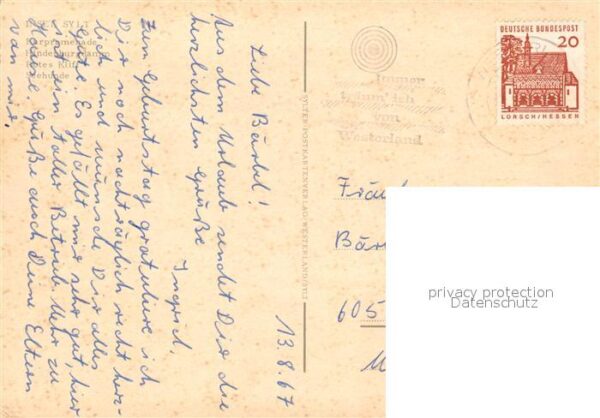 INSEL SYLT
Kurpromenade
Hindenburgdamm
Rotes Kliff
Seehunde
Liebe Bärbel!
Aus dem Urlaub sendet Dir die
herzlichsten Grüße
Ingrid.
Zum Geburtstag gratuliere ich
Dir noch nachträglich recht herz-
lich und wünsche Dir alles
Gute. Es gefällt mir sehr gut, hier
ist ein toller Betrieb.
Grüße auch Deine Eltern
von mir.
13.8.67
SYLTER-POSTKARTENVERLAG WESTERLAND/SYLT
Immer
träum' ich
von
Westerland
DEUTSCHE BUNDESPOST
20
LORSCH/HESSEN
Fräul
Bär
605
privacy protection
Datenschutz